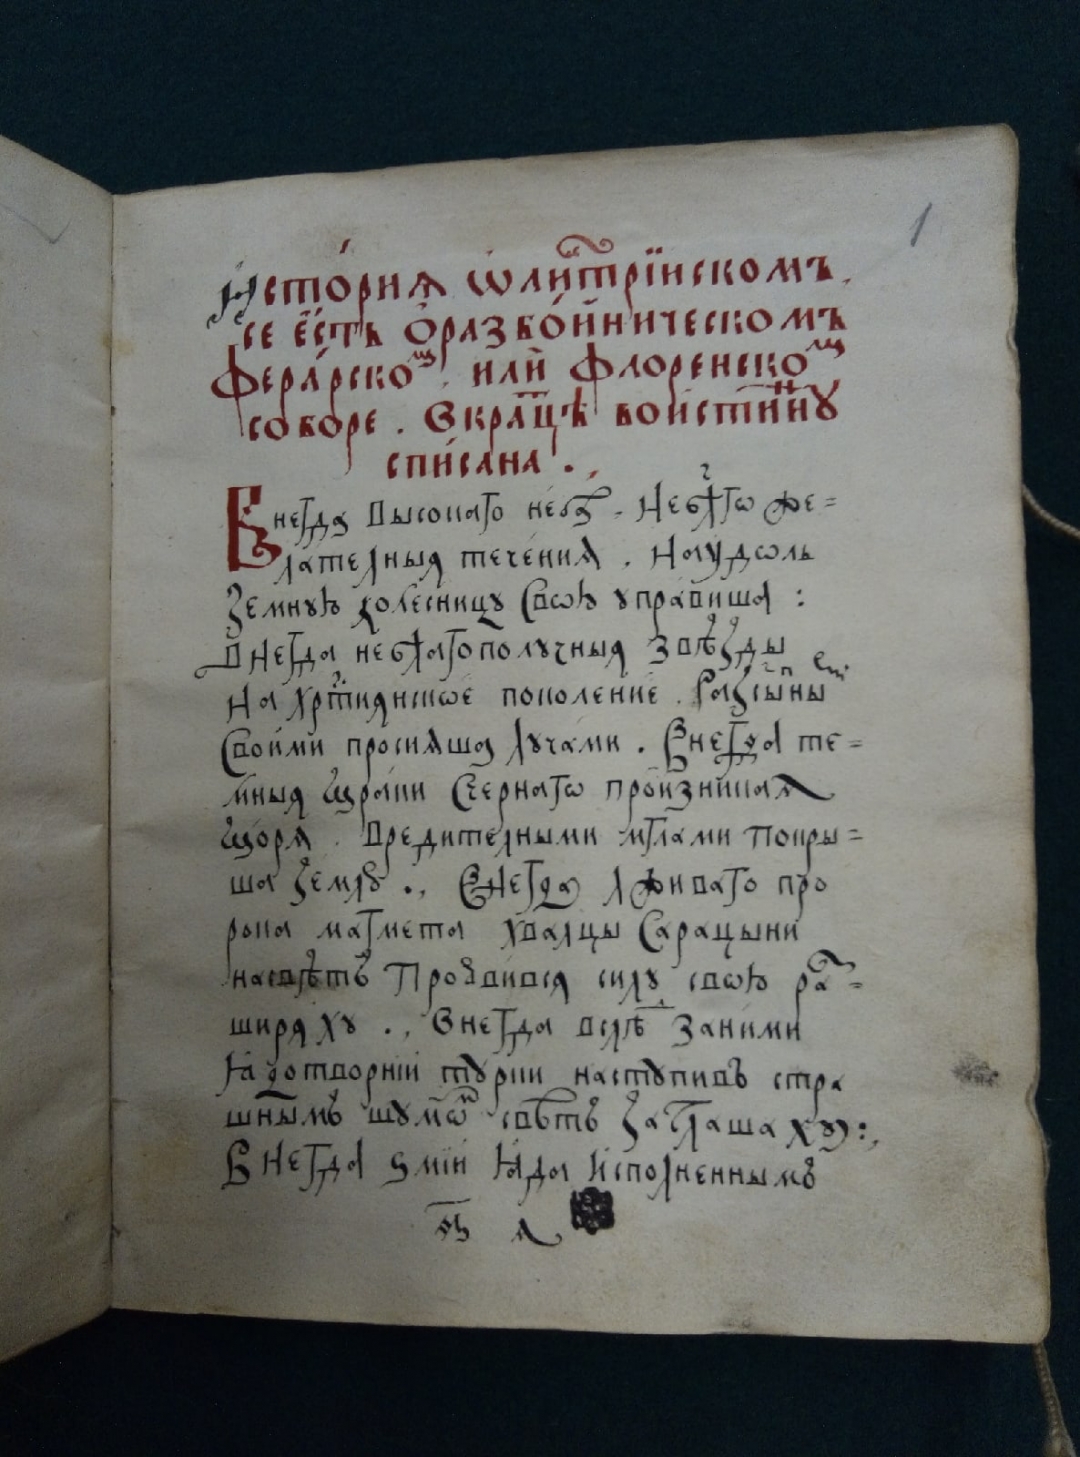 1
Исто́рия ѡ ли́стрїискомъ,
се е́сть ѻ разбо́йническомъ
Фера́рско᷆м, илѝ Флоренско᷆м
соборе. Вкра́тцѣ воистинну
спи́сана.,
Внегда высокаго неба̀, небл҃гѡ же=
лателныя тече́ния, на юдоль
земную колесницу свою упра́виша:
Внегда небл҃гополучныя звѣзды
на хрс̃тиянское поколение,
своими просияша луча́ми. Внегда те=
мныя
вредителными мглами покры=
ша землю., Внегда лживаго про
рока магмета хвалцы сарацыни
на свѣтъ проявився силу свою ра̃с=
ширяху., Внегда вслѣд за ними
ядотворнїи турки наступивъ стра
шнымъ шумом свѣтъ заглашаху:,
Внегда ѕмїи яда исполненнымъ